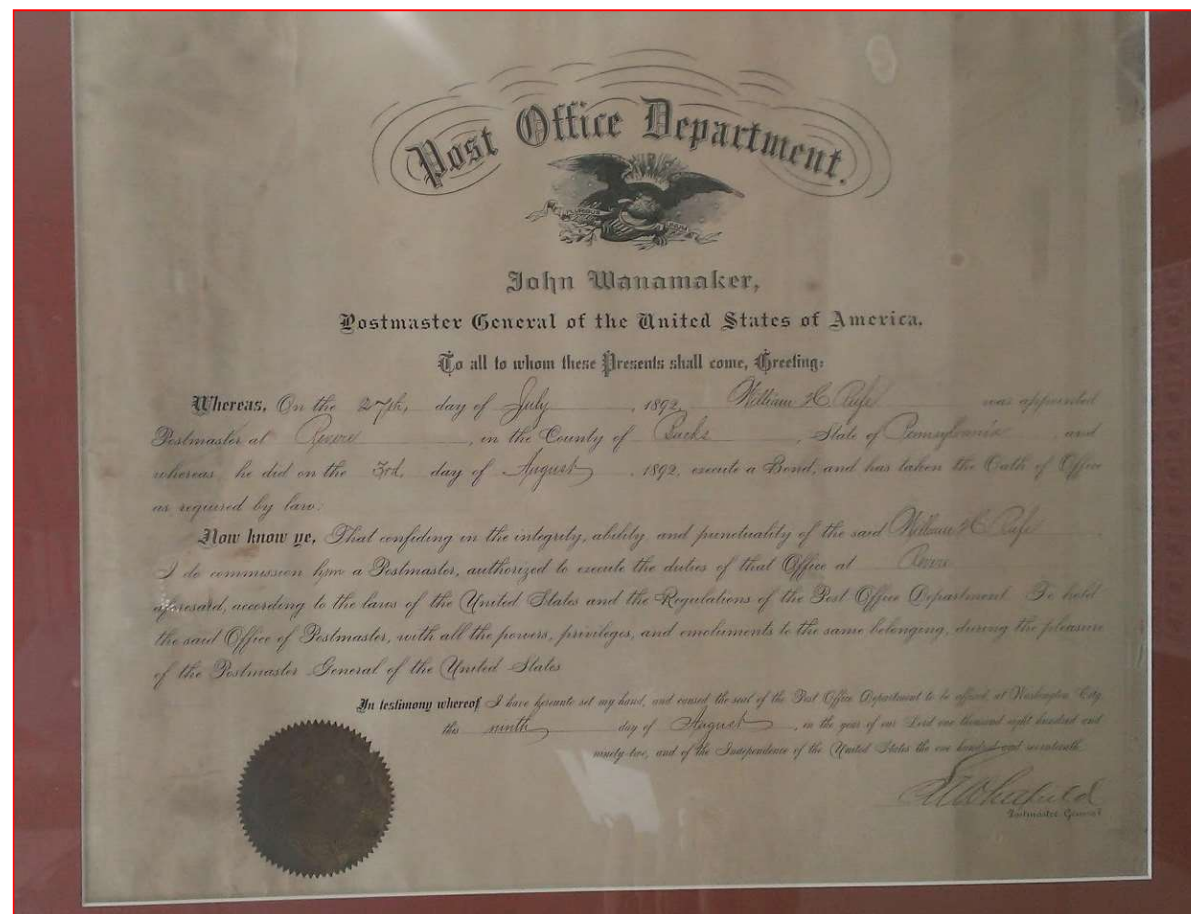 Post Office Department.
E PLURIBUS UNUM
John Wanamaker,
Postmaster General of the United States of America.
To all to whom these Presents shall come, Greeting:
Whereas, On the 27th, day of July, 1892, William H. was appointed
Postmaster at Revere, in the County of Bucks, State of Pennsylvania, and
whereas he did on the 3rd, day of August, 1892, execute a Bond, and has taken the Oath of Office
as required by law:
Now know ye, That confiding in the integrity, ability, and punctuality of the said William H.
I do commission him a Postmaster, authorized to execute the duties of that Office at Revere
aforesaid, according to the laws of the United States and the Regulations of the Post Office Department. To hold
the said Office of Postmaster, with all the powers, privileges, and emoluments to the same belonging, during the pleasure
of the Postmaster General of the United States
In testimony whereof, I have hereunto set my hand, and caused the seal of the Post Office Department to be affixed, at Washington City,
this ninth day of August, in the year of our Lord one thousand eight hundred and
ninety-two, and of the Independence of the United States the one hundred and seventeenth.
Postmaster General